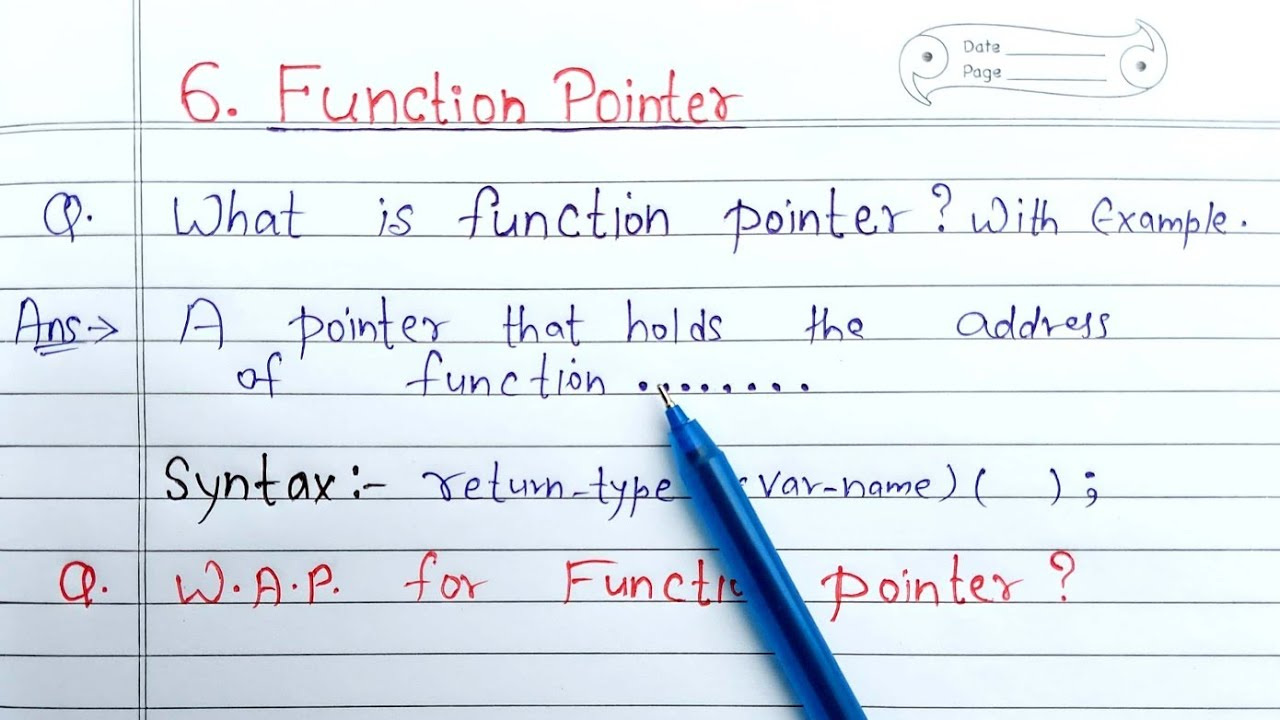 Date
Page
6. Function Pointer
Q. What is function pointer? With Example.
Ans→ A pointer that holds the address
of function ........
Syntax:- return-type var-name) ( ) ;
Q. W.A.P. for pointer?